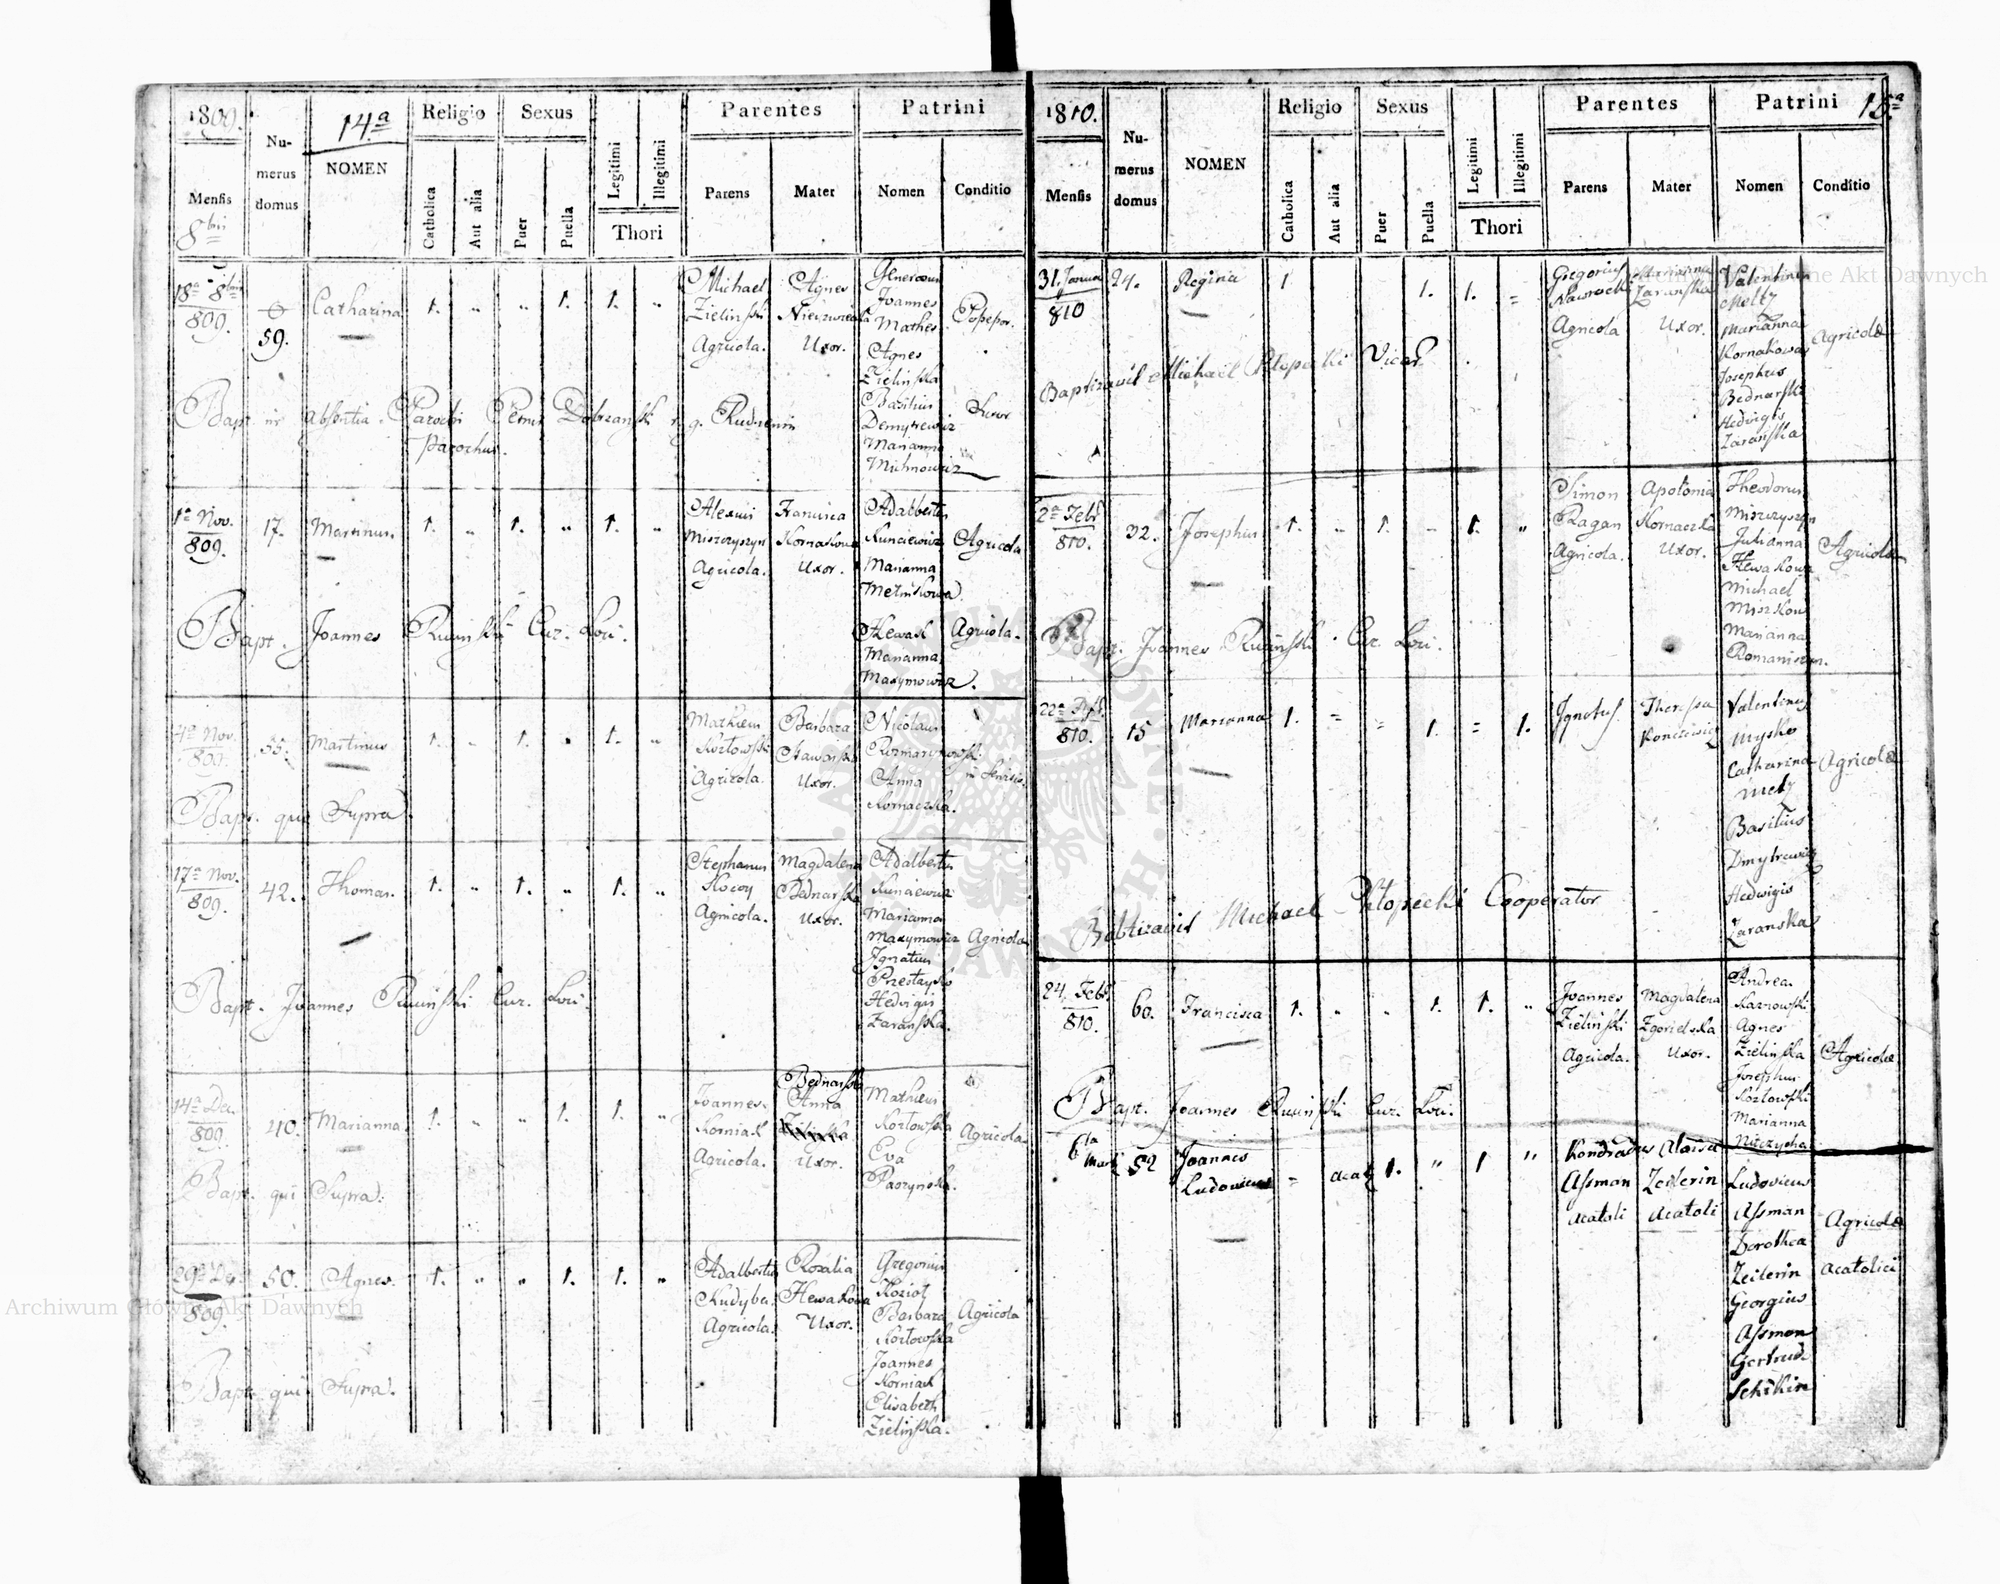 1809.
14a
Religio
Sexus
Parentes
Patrini
Nu-
merus
domus
NOMEN
Mensis
8bris
Catholica
Aut alia
Puer
Puella
Legitimi
Illegitimi
Thori
Parens
Mater
Nomen
Conditio
18a 8bris
809.
59.
Catharina
1. " " 1. 1. "
Michael
Zielinski
Agricola.
Agnes
Uxor.
Generosus
Joannes
Mathes
Agnes
Zielinska
Basilius
Marianna
Bapt. in absentia Parochi Petrus Dobrzanski r. g. Rudnensis
Parochus.
1a Nov.
809.
17.
Martinus.
1. " 1. " 1. "
Alexius
Miszczyszyn
Agricola.
Francisca
Kornakowa
Uxor.
Adalbertus
Kunciewicz
Marianna
Melnikowa.
Agricola
Hewak
Marianna
Maxymowicz.
Agricola.
Bapt. Joannes Ruzinski Cur. Loci.
4a Nov.
809.
55.
Martinus
1. " 1. " 1. "
Mathias
Kozlowski
Agricola.
Barbara
Uxor.
Nicolaus
Anna
Kornaczka.
Bapt. qui Supra.
17a Nov.
809.
42.
Thomas.
1. " 1. " 1. "
Stephanus
Agricola.
Magdalena
Bednarska
Uxor.
Adalbertus
Kunciewicz
Marianna
Maxymowicz
Ignatius
Hedvigis
Zaranska.
Agricola
Bapt. Joannes Ruzinski Cur. Loci.
14a Dec.
809.
40.
Marianna
1. " " 1. 1. "
Joannes
Korniak
Agricola.
Bednarska
Anna
Uxor.
Mathias
Kozlowski
Eva
Agricola
Bapt. qui Supra.
29a Dec
809.
50.
Agnes.
1. " " 1. 1. "
Adalbertus
Kudyba
Agricola.
Rosalia
Hewakowa
Uxor.
Gregorius
Koziol
Barbara
Kozlowska
Joannes
Korniak
Elisabeth
Zielinska.
Agricola
Bapt. qui Supra.
1810.
15a
Religio
Sexus
Parentes
Patrini
Nu-
merus
domus
NOMEN
Mensis
Catholica
Aut alia
Puer
Puella
Legitimi
Illegitimi
Thori
Parens
Mater
Nomen
Conditio
31. Janua
810
24.
Regina
1. 1. 1. =
Gregorius
Nawrocki
Agricola
Marianna
Zaranska
Uxor.
Valentinus
Melty
Marianna
Kornakowa
Josephus
Bednarski
Hedvigis
Zaranska
Agricolae
Baptizavit Michael Klopecki Vicar.
2a Febr
810.
32.
Josephus
1. " 1. " 1. "
Simon
Ragan
Agricola.
Apolonia
Kornaczka
Uxor.
Theodorus
Miszczyszyn
Julianna
Hewakowa
Michael
Miszkow
Marianna
Romaniszyn.
Agricolae
Bapt. Joannes Ruzinski Cur. Loci.
22a Feb.
810.
15
Marianna
1. = = 1. = 1.
Ignotus.
Theressa
Valentinus
Mysko
Catharina
Melty
Basilius
Dmytrewicz
Hedwigis
Zaranska
Agricolae
Babtizavit Michael Klopecki Cooperator
24. Febr.
810.
60.
Francisca
1. " " 1. 1. "
Joannes
Zielinski
Agricola.
Magdalena
Zgorielska
Uxor.
Andreas
Kaznowski
Agnes
Zielinska
Josephus
Kozlowski
Marianna
Agricolae
Bapt. Joannes Ruzinski Cur. Loci.
6ta
Marti
52
Joannes
Ludovicus
= acat. 1. " 1 "
Kondradus
Assman
acatoli
Aloisa
Zeilerin
acatoli
Ludovicus
Assman
Dorothea
Zeilerin
Georgius
Assman
Gertrud
Schikin
Agricolae
acatolici
Archiwum Główne Akt Dawnych